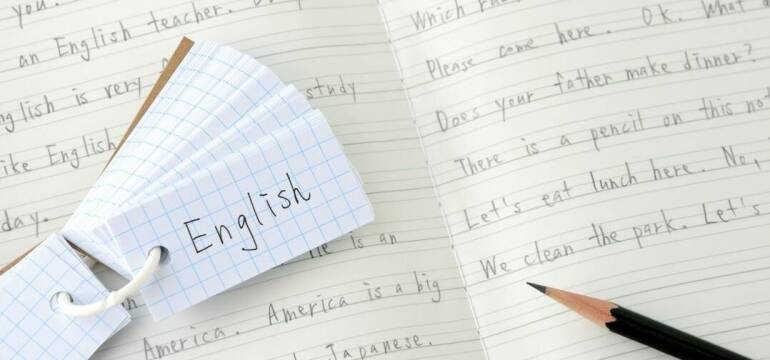 you.
an English teacher. Do
English is very
study
like English
day.
is an
America. America is a big
Japanese.
English
Which
Please come here. OK. What
Does your father make dinner?
There is a pencil on this
Let's eat lunch here. No,
We clean the park. Let's